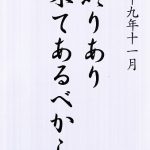 十九年十一月
終りあり
果てあるべから